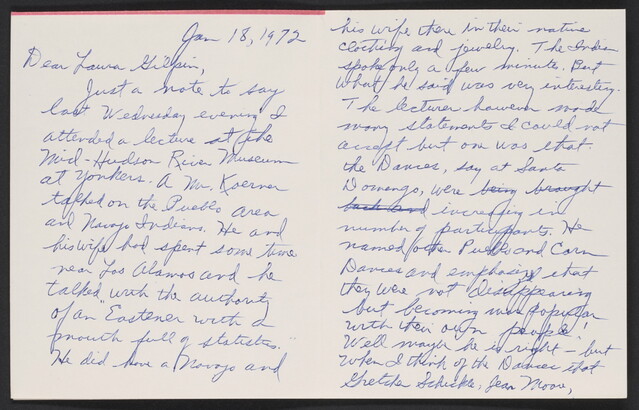 Jan 18, 1972
Dear Laura Gilpin,
Just a note to say
last Wednesday evening I
attended a lecture at the
Mid-Hudson River Museum
at Yonkers. A Mr. Koerner
talked on the Pueblo area
and Navajo Indians. He and
his wife had spent some time
near Los Alamos and he
talked "with the authority
of an Easterner with a
mouth full of statistics."
He did have a Navajo and
his wife there in their native
clothing and jewelry. The Indian
spoke only a few minutes. But
what he said was very interesting.
The lecturer however made
many statements I could not
accept but one was that
the Dances, say at Santo
Domingo, were being brought
back and increasing in
number of participants. He
named other Pueblo and Corn
Dances and emphasized that
they were not disappearing
but becoming more popular
with their own people!
Well maybe he is right - but
when I think of the Dances that
Jean Moore,